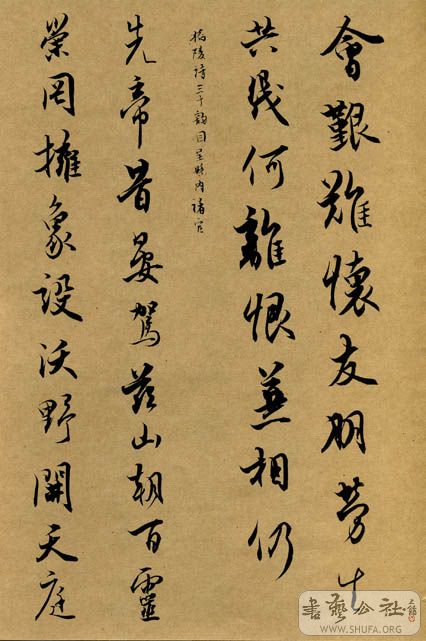 會艱難懷友朋勞生
共幾何離恨兼相仍
橋陵詩三十韻因呈縣內諸官
先帝昔晏駕茲山朝百靈
崇岡擁象設沃野開天庭
書藝公社
WWW.SHUFA.ORG